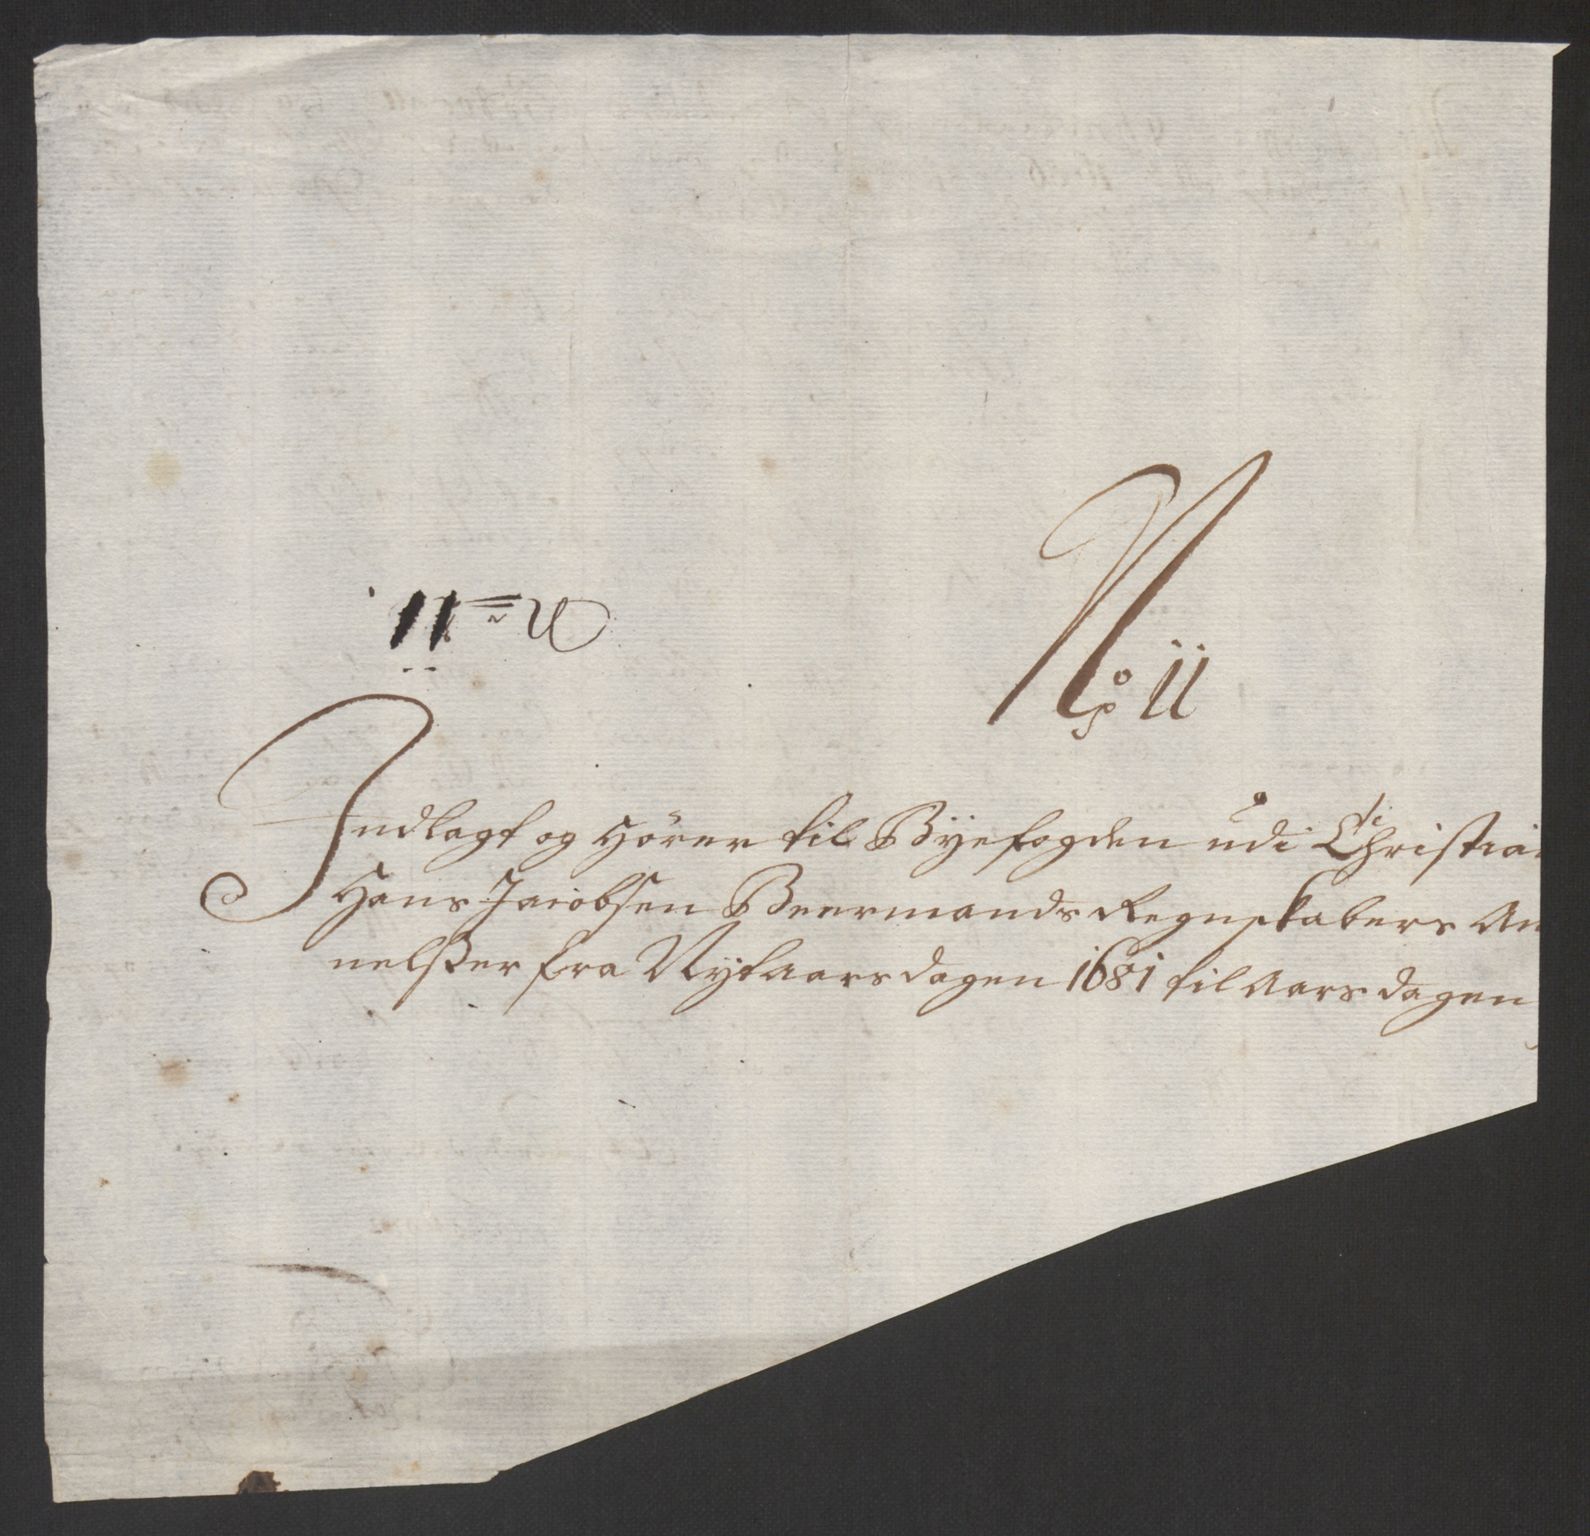 No 11
N 11
Indlagt og hörer til Byefogden udi Christia
Hans Jacobsen Beermands Regnskabers An
nelsser fra Nytaarsdagen 1681 til Aarsdagen